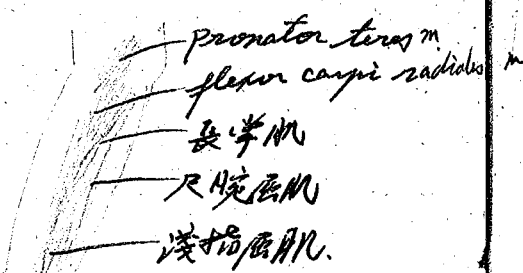 pronator teres m.
flexor carpi radiales m
長掌肌
尺腕屈肌
淺指屈肌.